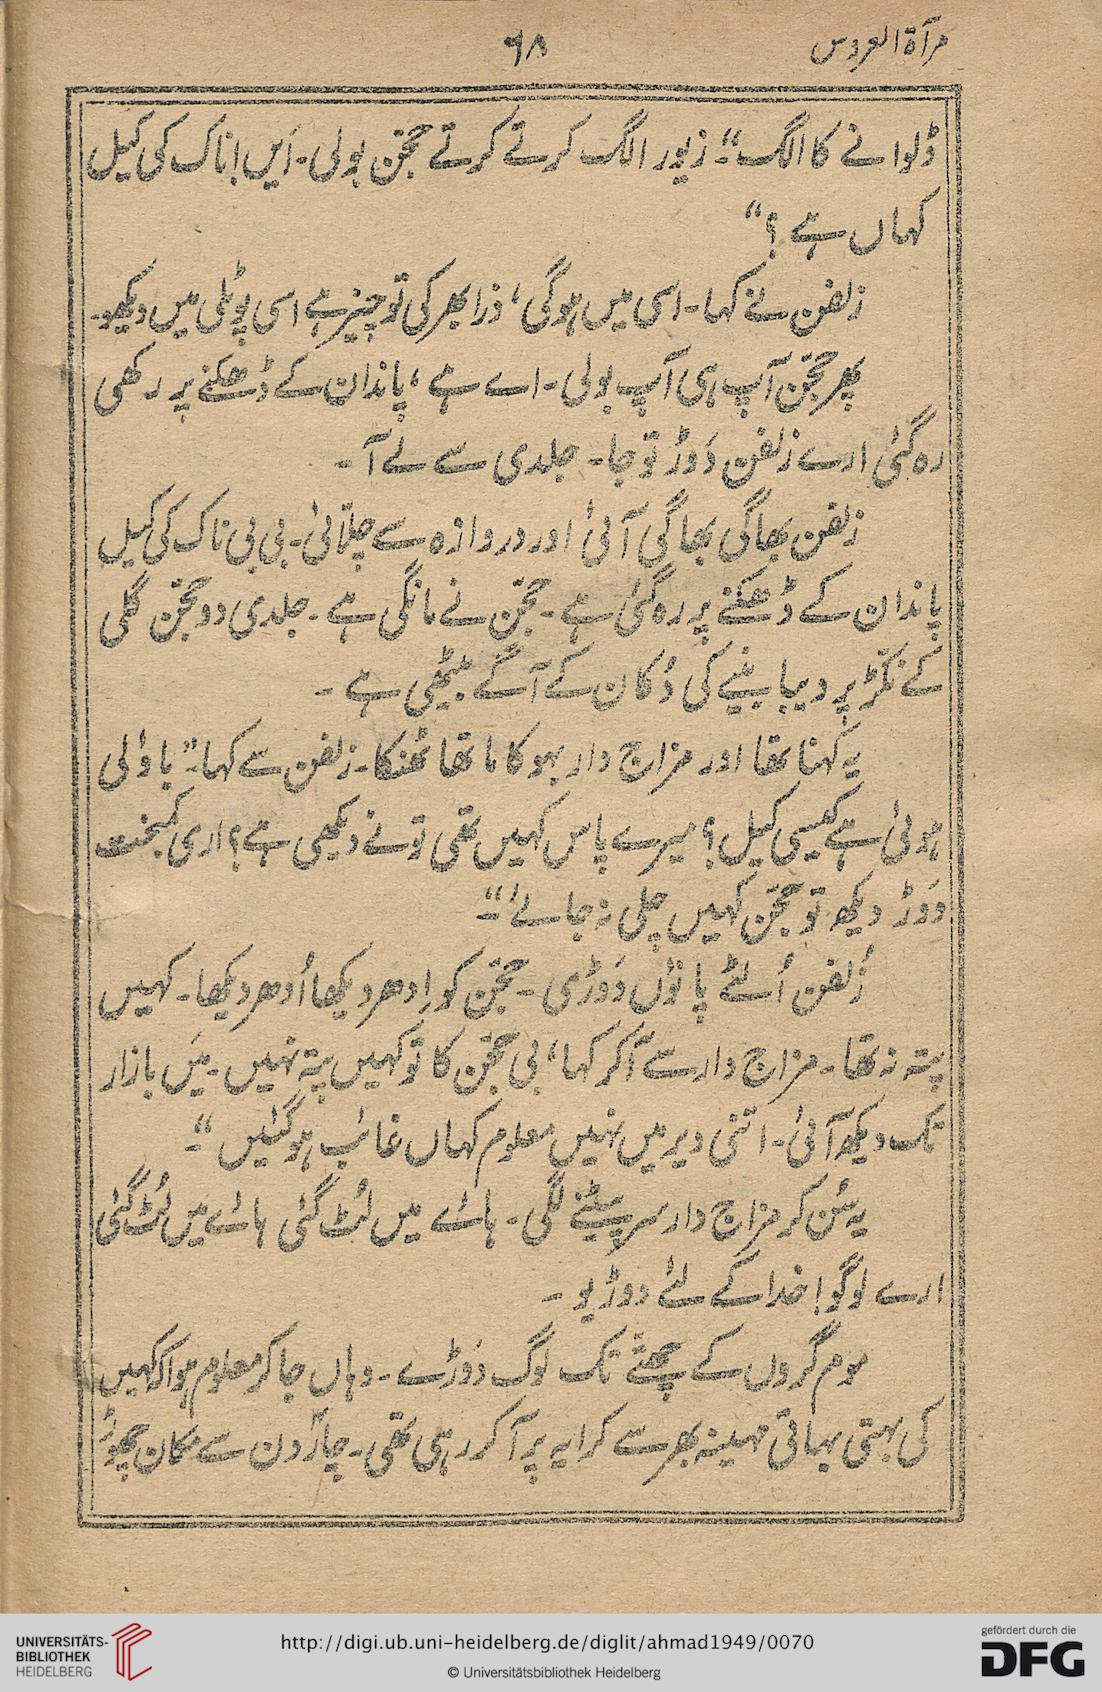 مرآۃ العروس
۶۸
ڈلوانے کا الگ“۔ زیور الگ کرتے کرتے حجّن بولی۔ اَیں! ناک کی کیل
کہاں ہے ؟“
زلفن نے کہا۔ اسی میں ہوگی، ذرا بھر کی تو چیز ہے اسی پوٹلی میں دیکھو۔
پھر حجّن آپ ہی آپ بولی۔ اے ہے ، پاندان کے ڈھکنے پر رکھی
رہ گئی ارے زلفن دَوڑ تو جا۔ جلدی سے لے آ۔
زلفن بھاگی بھاگی آئی اور دروازہ سے چلّائی۔ بی بی ناک کی کیل
پاندان کے ڈھکنے پر رہ گئی ہے۔ حجّن نے مانگی ہے۔ جلدی دو حجّن گلی
کے نکڑ پر دیبا بنیے کی دُکان کے آگے بیٹھی ہے۔
یہ کہنا تھا اور مزاج دار بہو کا ماتھا ٹھنکا۔ زلفن سے کہا۔ ”باؤلی
ہوئی ہے کیسی کیل؟ میرے پاس کہیں تھی تو نے دیکھی ہے؟ اری کمبخت
دَوڑ دیکھ تو حجّن کہیں چلی نہ جائے“۔
زُلفن اُلٹے پاؤں دَوڑی۔ حجّن کو اِدھر دیکھا اُدھر دیکھا۔ کہیں
پتہ نہ تھا۔ مزاج دار سے آکر کہا، بی حجّن کا تو کہیں پتہ نہیں۔ میَں بازار
تک دیکھ آئی۔ اتنی دیر میں نہیں معلوم کہاں غائب ہوگئیں“۔
یہ سُن کر مزاج دار سر پیٹنے لگی۔ ہائے میں لُٹ گئی ہائے میں لُٹ گئی
ارے لوگو! خدا کے لئے دوڑیو۔
موم گروں کے چھتّے تک لوگ دَوڑے۔ وہاں جاکر معلوم ہوا کہ کہیں
کی بہتی بہاتی مہینہ بھر سے کرایہ پر آکر رہی تھی۔ چار دن سے مکان چھوڑ
UNIVERSITÄTS-
BIBLIOTHEK
HEIDELBERG
http://digi.ub.uni-heidelberg.de/diglit/ahmad1949/0070
© Universitätsbibliothek Heidelberg
gefördert durch die
DFG